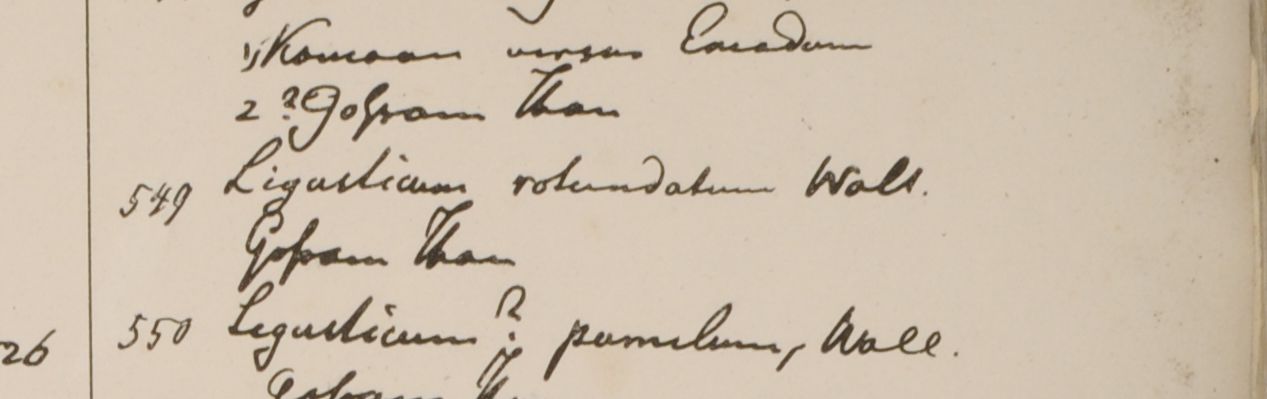 1) Kamaon versus Emodum
2 ? Gossam Than
549 Ligusticum rotundatum Wall.
Gossam Than
26 550 Ligusticum? pumilum, Wall.
Gossam